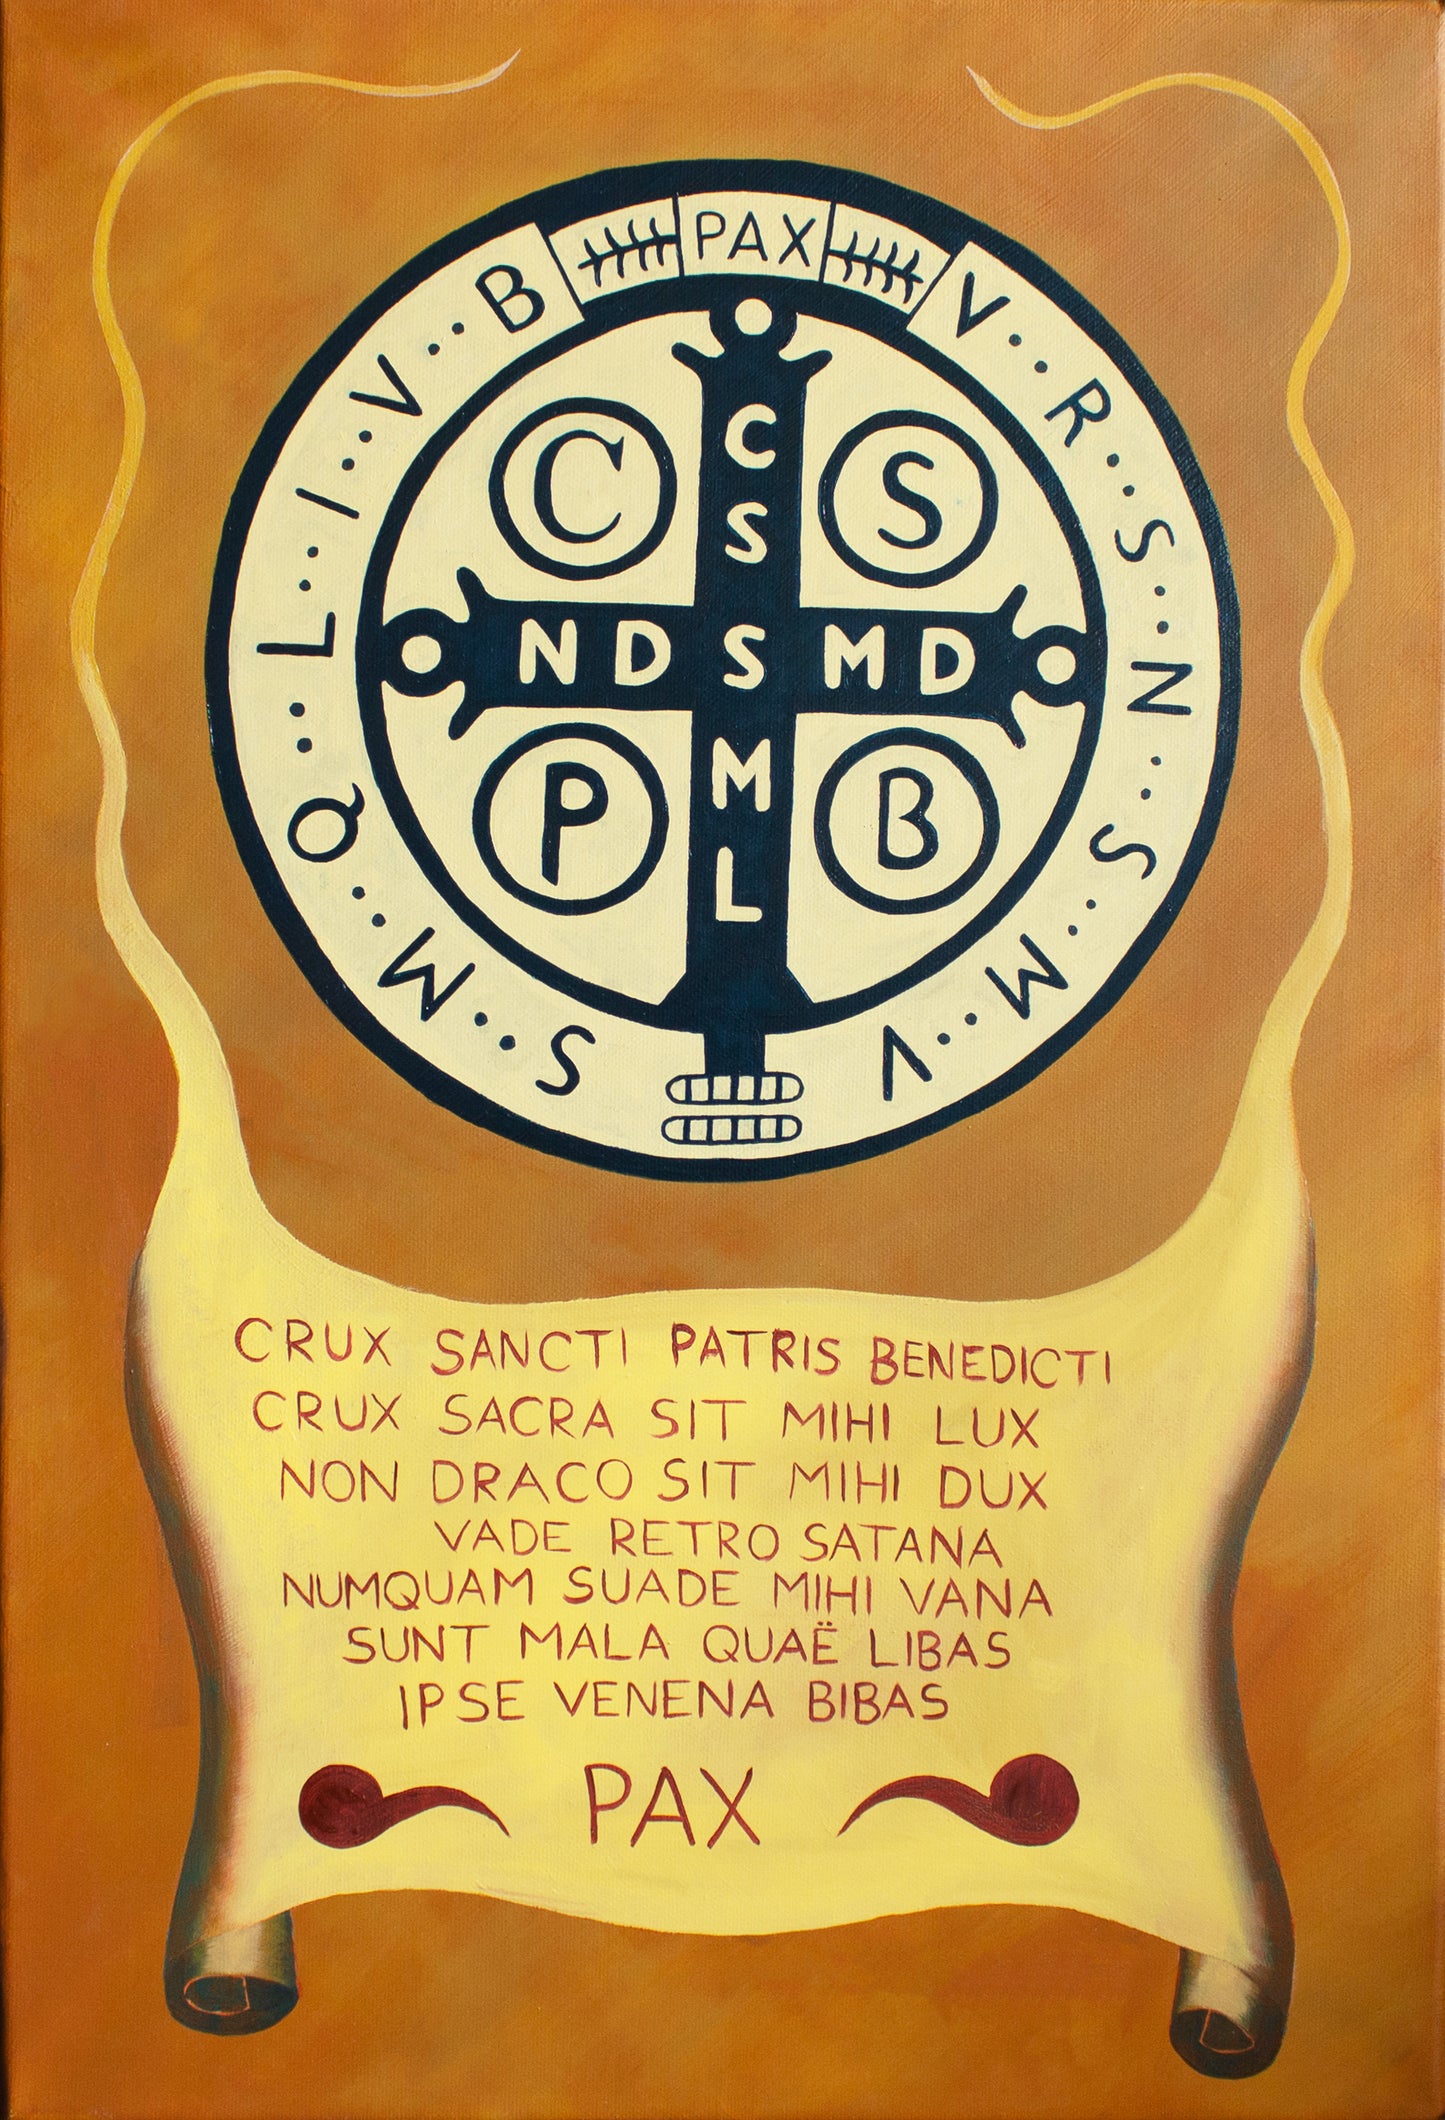 PAX
V · · R · · S · · N · · S · · M · · V
S · · M · · Q · · L · · I · · V · · B
C S
C
S
N D S M D
M
L
P B
CRUX SANCTI PATRIS BENEDICTI
CRUX SACRA SIT MIHI LUX
NON DRACO SIT MIHI DUX
VADE RETRO SATANA
NUMQUAM SUADE MIHI VANA
SUNT MALA QUAË LIBAS
IPSE VENENA BIBAS
PAX